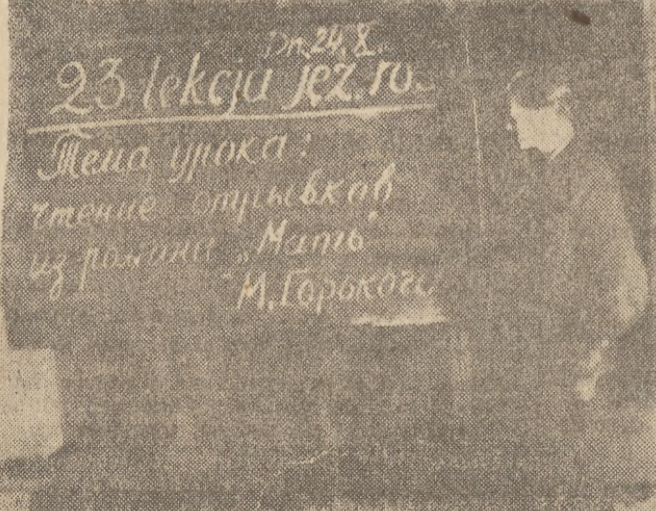 Dn. 24. X.
23 lekcja jęz. ro
Тема урока:
чтение отрывков
из романа „Мать"
М. Горького